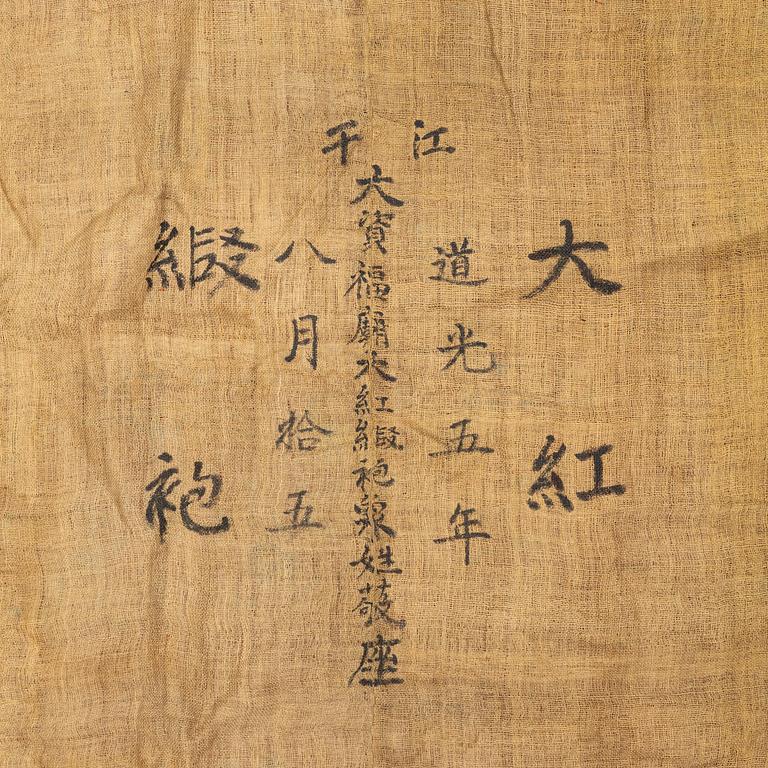 江干
大紅
道光五年
大資福廟大紅緞袍衆姓敬座
八月拾五
緞袍